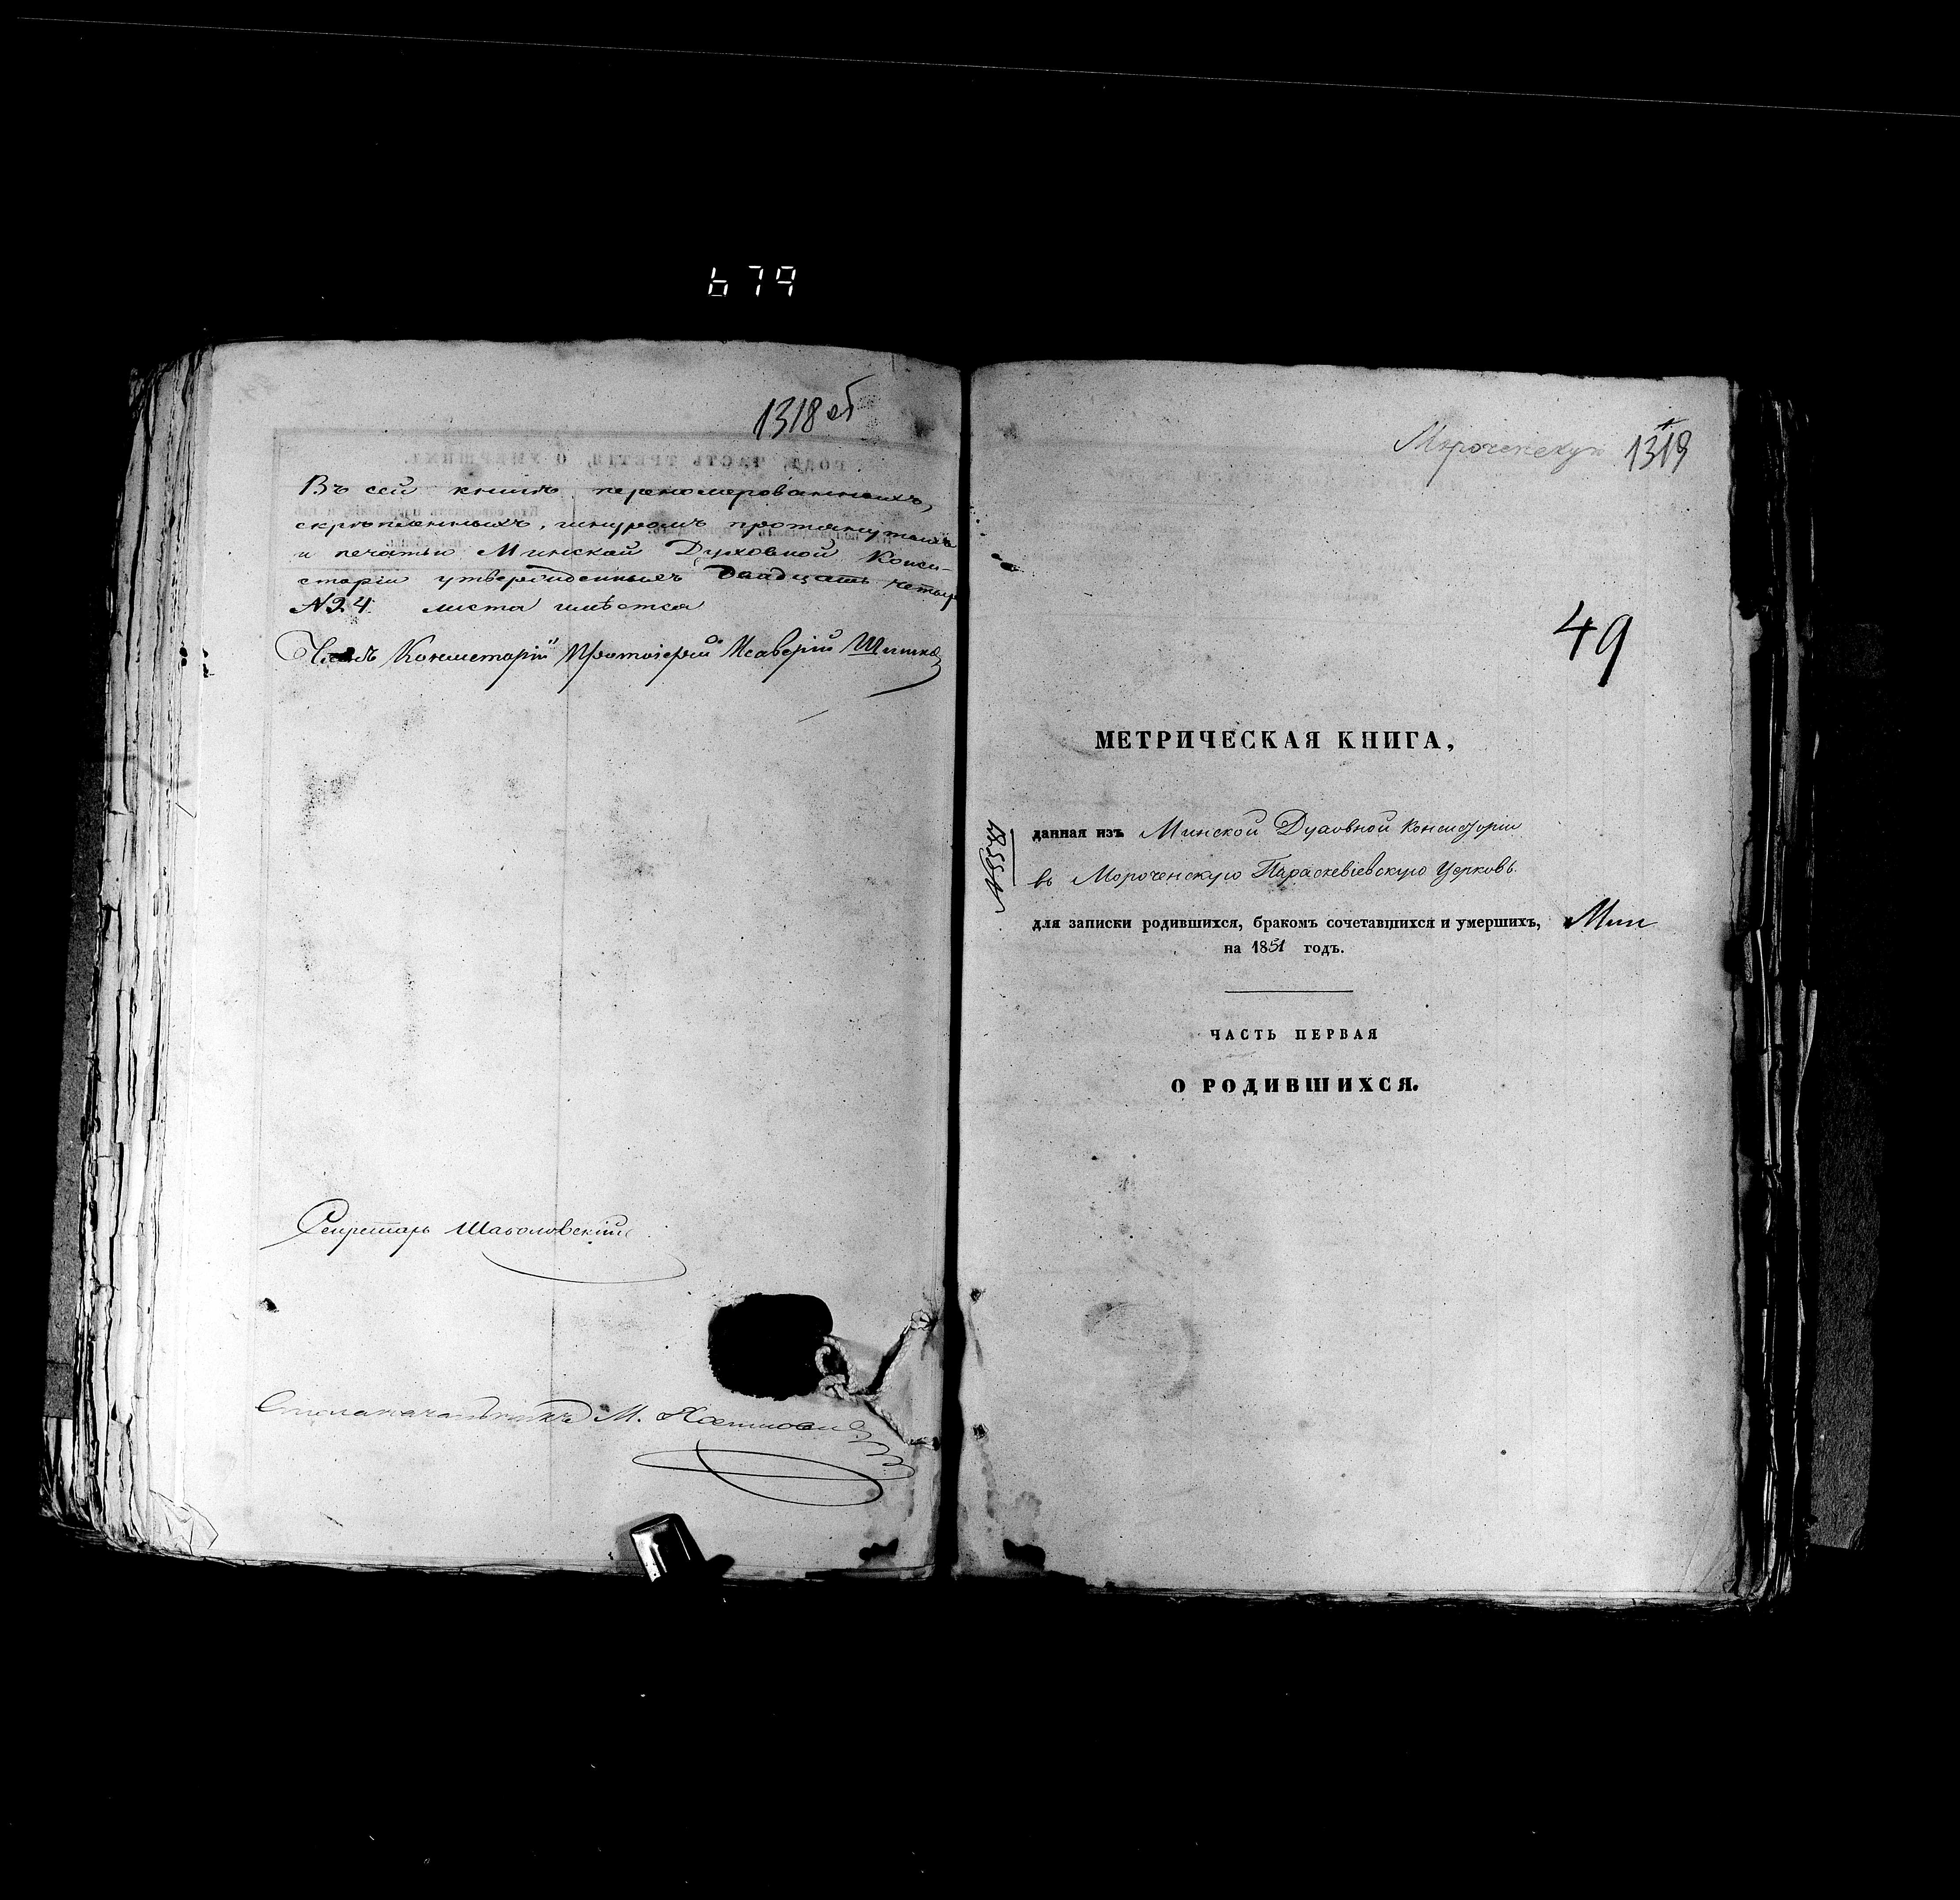 679
1318 об
Въ сей книгѣ перенумерованныхъ,
скрѣпленныхъ, шнуромъ протянутыхъ
и печатью Минской Духовной Конси-
сторіи утвержденныхъ двадцать четыр
№24. листа имѣется
Членъ Консисторіи Протоіерей Ксаверій
Секретарь
Столоначальникъ М.
Мороченскую 1319
49
МЕТРИЧЕСКАЯ КНИГА,
данная изъ Минской Духовной Консисторіи
въ Мороченскую Параскевіевскую Церковь
для записки родившихся, бракомъ сочетавшихся и умершихъ,
на 1851 годъ.
ЧАСТЬ ПЕРВАЯ
О РОДИВШИХСЯ.